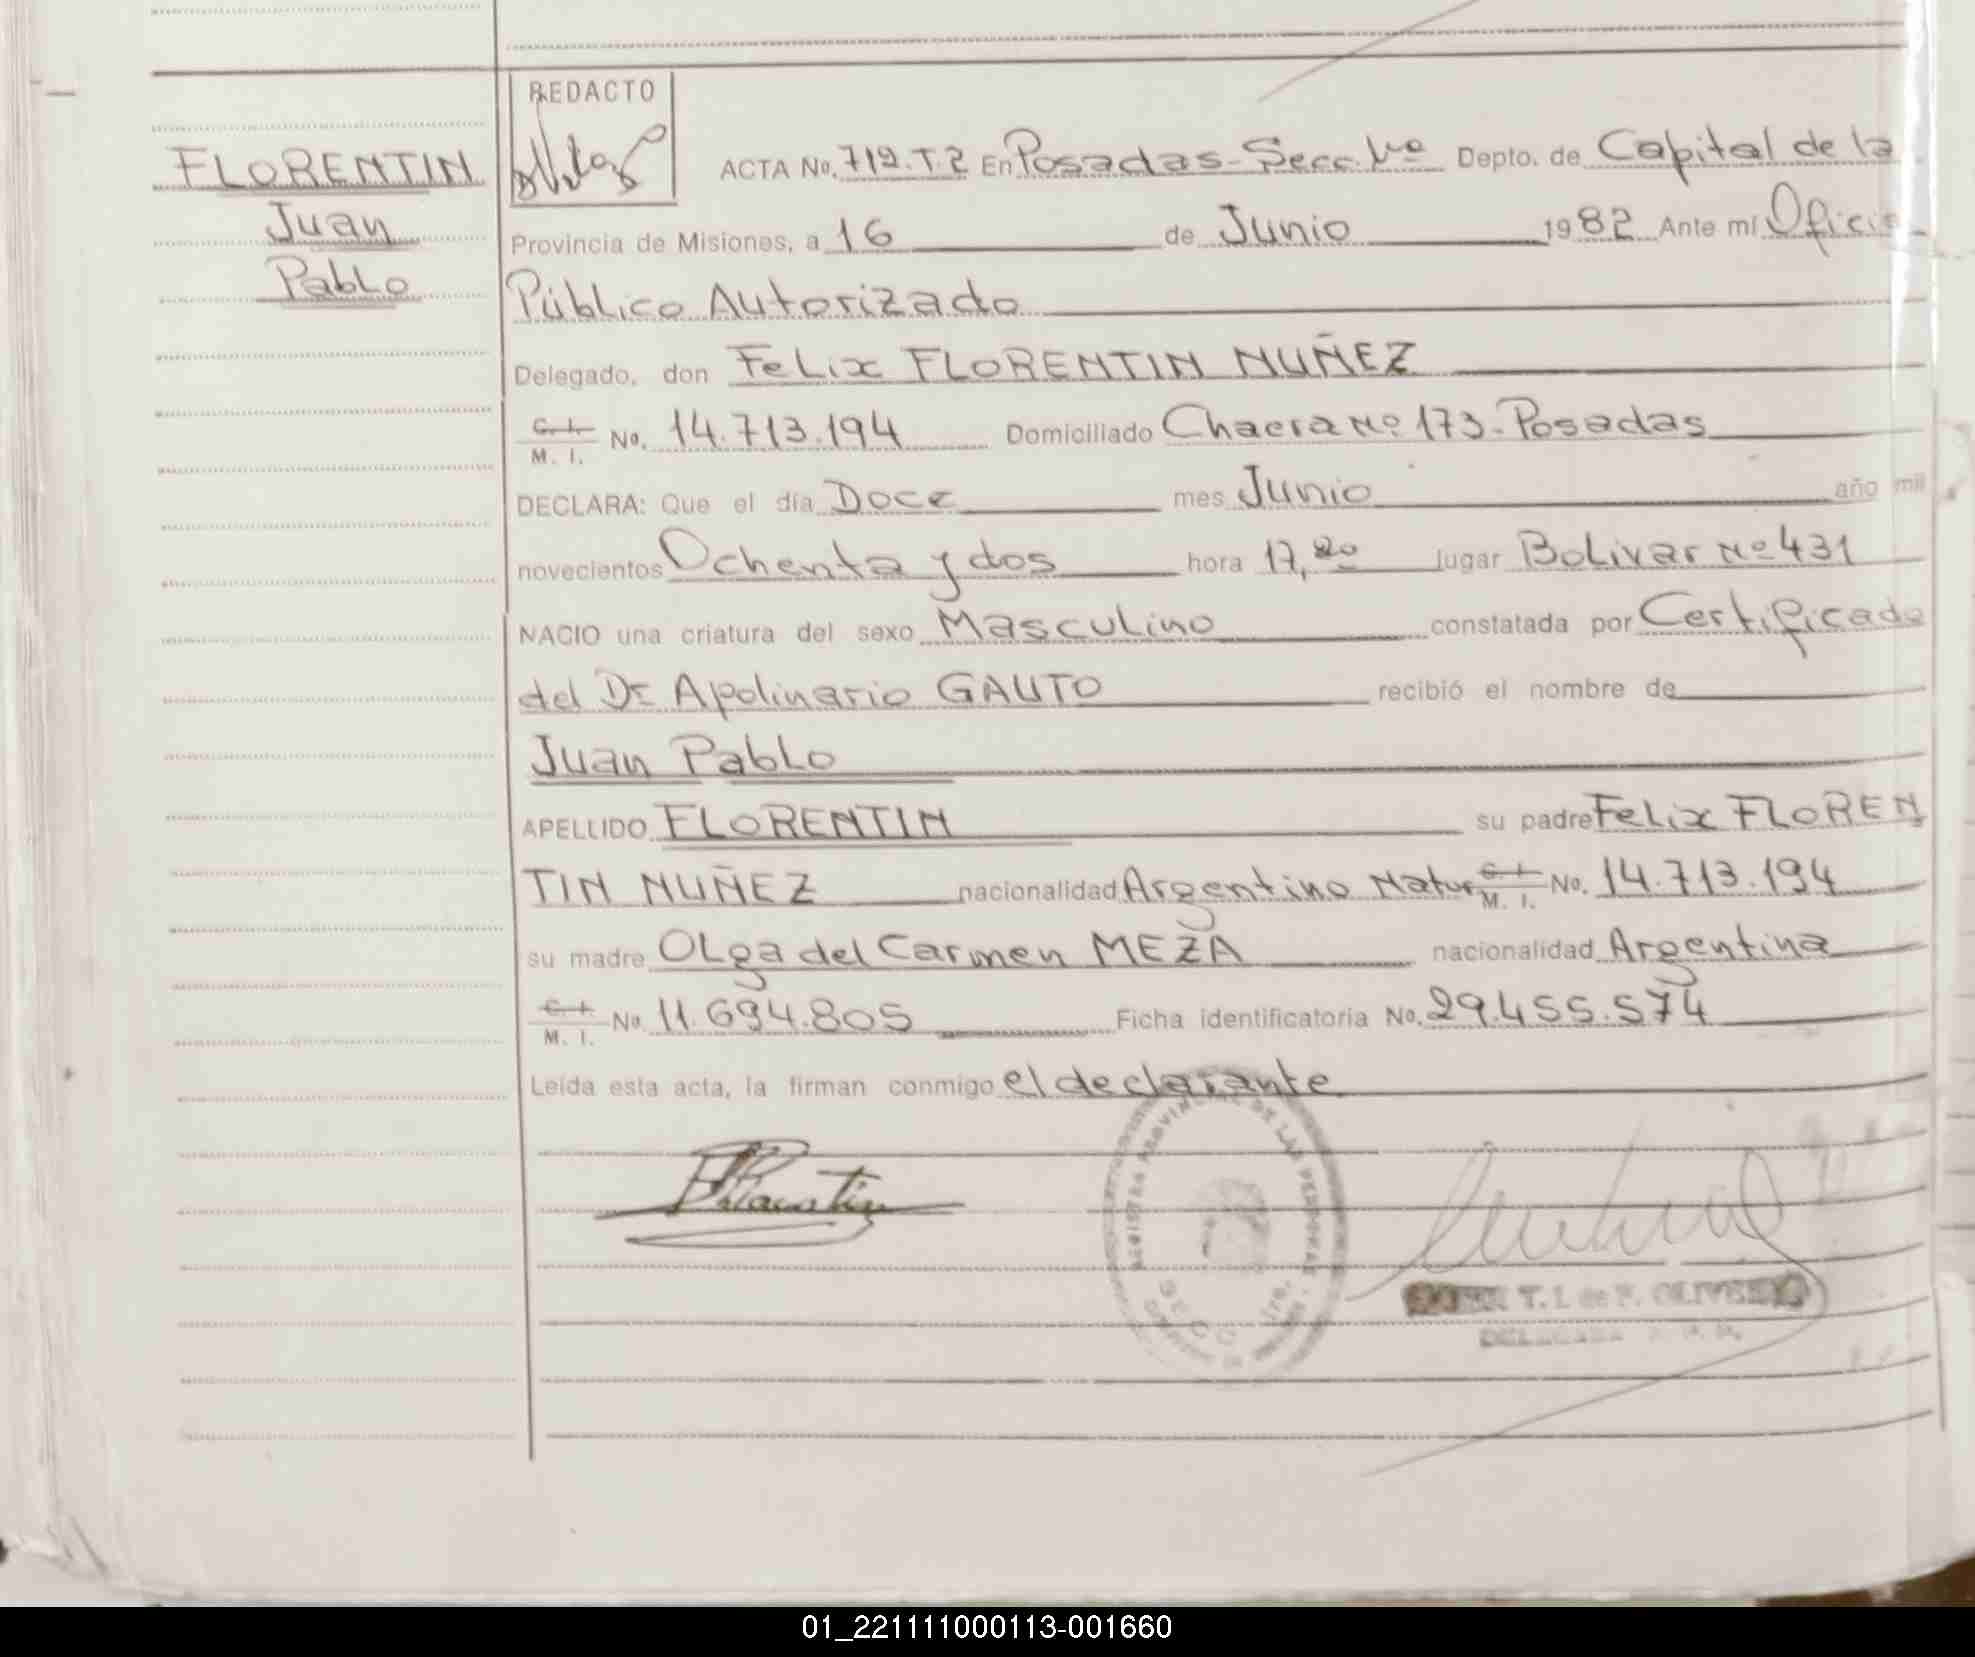 FLORENTIN
Juan
Pablo
REDACTO
ACTA No. 719.T.2 En Posadas-Secc. 1ra Depto. de Capital de la
Provincia de Misiones, a 16 de Junio 1982 Ante mí Oficia
Público Autorizado
Delegado, don Felix FLORENTIN NUÑEZ
C. I. M. I. No. 14.713.194 Domiciliado Chacra Nº 173-Posadas
DECLARA: Que el día Doce mes Junio año mil
novecientos Ochenta y dos hora 17,20 lugar Bolivar Nº 431
NACIO una criatura del sexo Masculino constatada por Certificado
del Dr Apolinario GAUTO recibió el nombre de
Juan Pablo
APELLIDO FLORENTIN su padre Felix FLOREN
TIN NUÑEZ nacionalidad Argentino Natur C. I. M. I. No. 14.713.194
su madre Olga del Carmen MEZA nacionalidad Argentina
C. I. M. I. No. 11.694.805 Ficha identificatoria No. 29.455.574
Leída esta acta, la firman conmigo el declarante
REGISTRO PROVINCIAL DE LAS PERSONAS
SECC 1ra.
T. I. de F. OLIVEIRA
DELEGADA
01_221111000113-001660